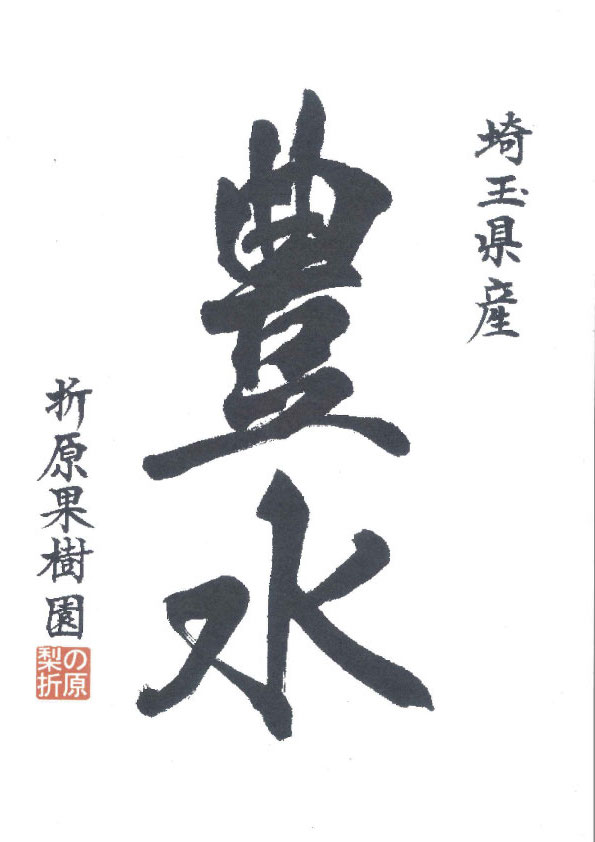 埼玉県産
豊水
折原果樹園
の原
梨折